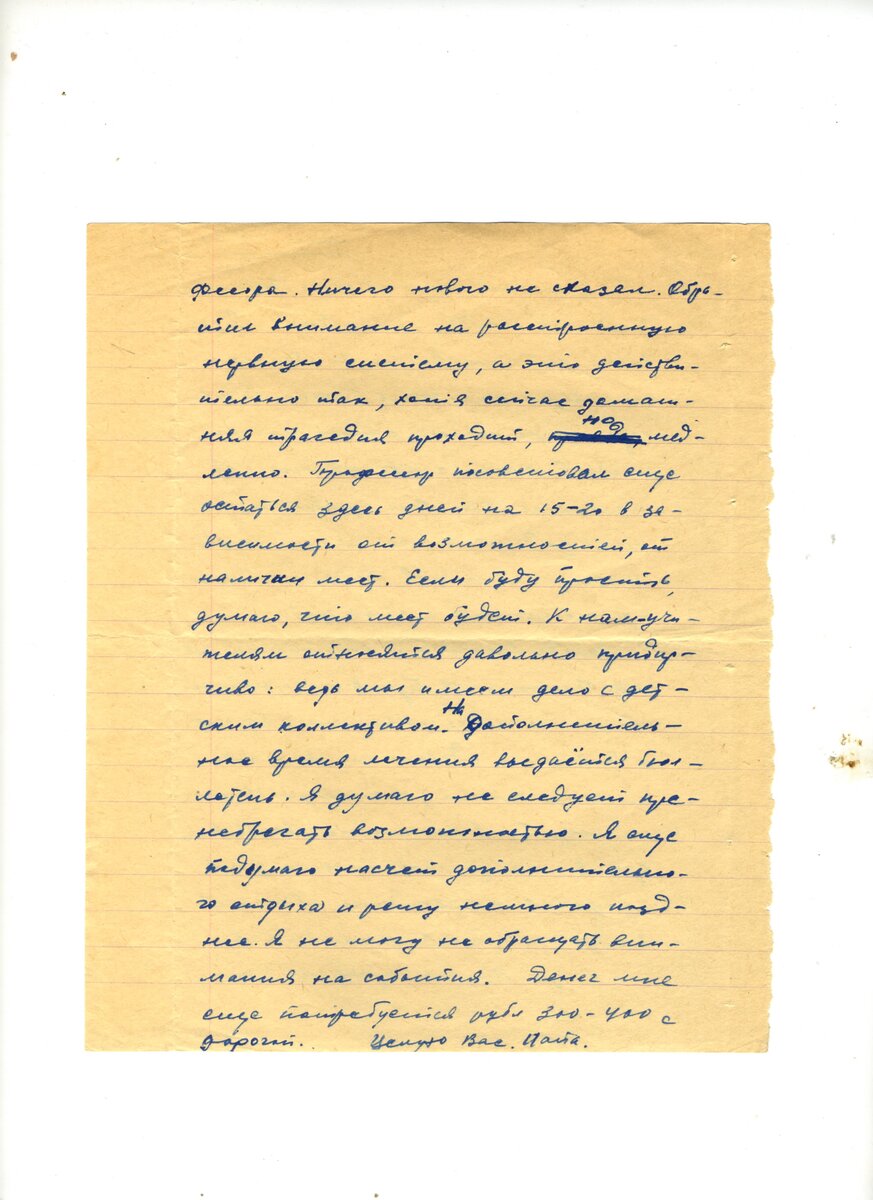 фессора. Ничего нового не сказал. Обра-
тил внимание на расстроенную
нервную систему, а это действи-
тельно так, хотя сейчас домаш-
няя трагедия проходит, но мед-
ленно. Профессор посоветовал еще
остаться здесь дней на 15-20 в за-
висимости от возможностей, от
наличия мест. Если буду просить,
думаю, что мест будет. К нам-учи-
телям относятся довольно придир-
чиво: ведь мы имеем дело с дет-
ским коллективом. На дополнитель-
ное время лечения выдаётся бюл-
летень. Я думаю не следует пре-
небрегать возможностью. Я еще
подумаю насчет дополнительно-
го отдыха и решу немного позд-
нее. Я не могу не обращать вни-
мания на события. Денег мне
еще потребуется рубл 300-400 с
дорогой. Целую Вас. Папа.